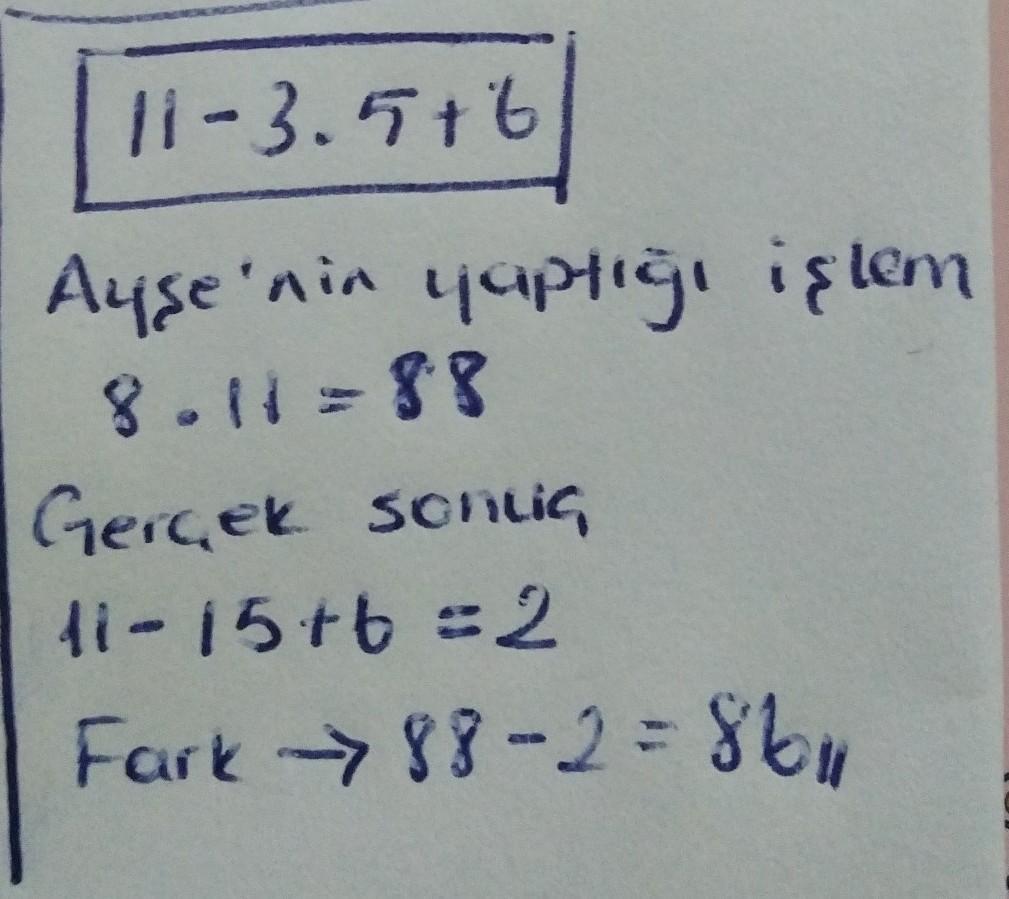 11-3.5+6
Ayşe'nin yaptığı işlem
8.11=88
Gerçek sonuç
11-15+6=2
Fark → 88-2=86//